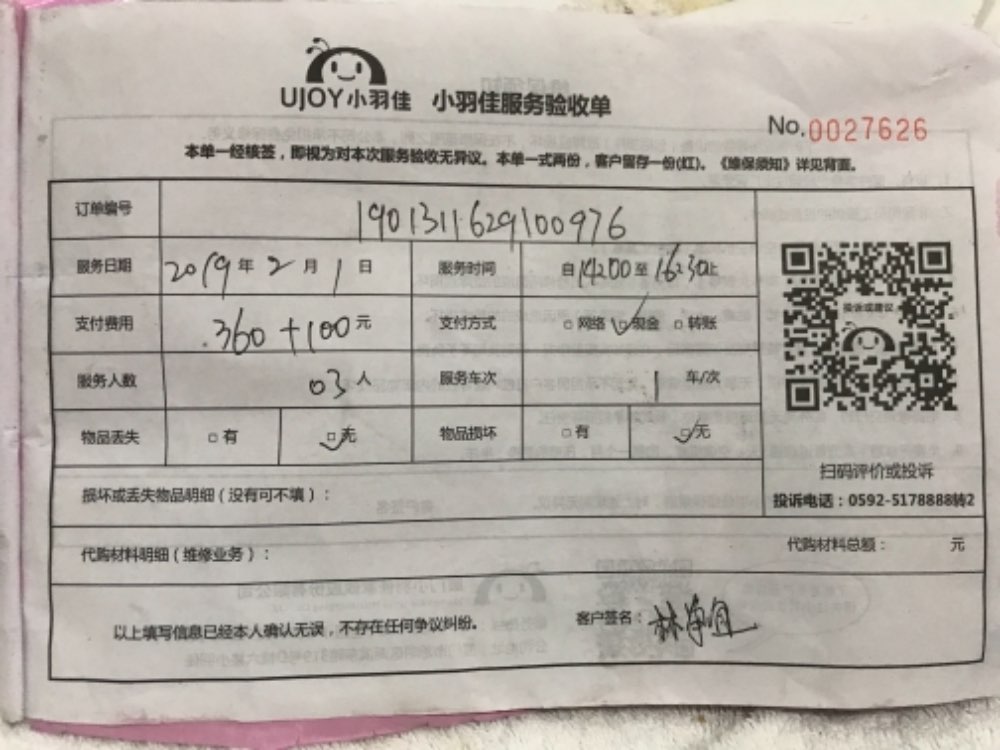 UJOY小羽佳 小羽佳服务验收单
No.0027626
本单一经核签，即视为对本次服务验收无异议。本单一式两份，客户留存一份(红)。《维保须知》详见背面。
订单编号 1901311629100976
服务日期 2019年2月1日 服务时间 自14:00至16:30止
支付费用 360+100元 支付方式 □网络 ☑现金 □转账
服务人数 03人 服务车次 1车/次
物品丢失 □有 ☑无 物品损坏 □有 ☑无
投诉或建议
扫码评价或投诉
投诉电话：0592-5178888转2
损坏或丢失物品明细（没有可不填）：
代购材料明细（维修业务）： 代购材料总额： 元
以上填写信息已经本人确认无误，不存在任何争议纠纷。 客户签名：林